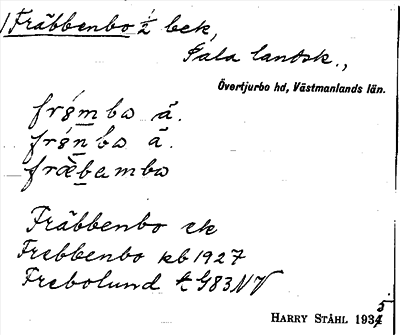 Fräbbenbo 1/2 bek,
Sala landsk.,
Övertjurbo hd, Västmanlands län.
frömba ä.
frönba ä.
fræbamba
Fräbbenbo ek
Frebbenbo kb 1927
Frebolund G83NV
HARRY STÅHL 1935